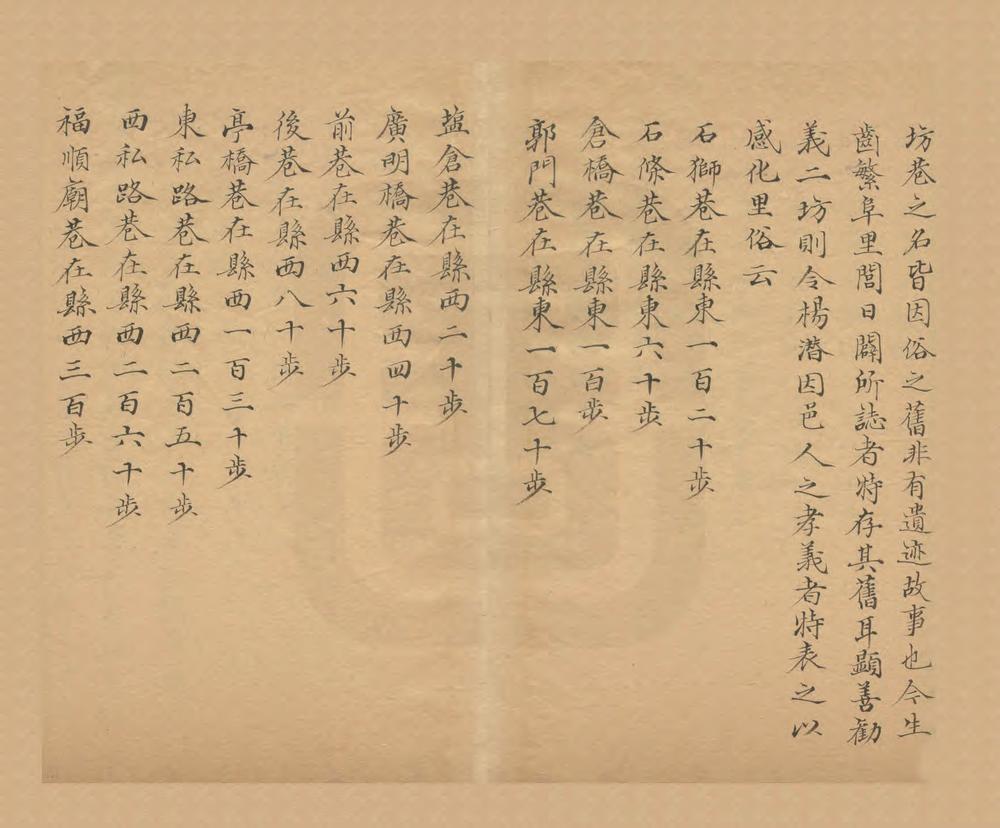 坊巷之名皆因俗之舊非有遺迹故事也今生
齒繁阜里閭日闢所誌者特存其舊耳顯善勸
義二坊則令楊潛因邑人之孝義者特表之以
感化里俗云
石獅巷在縣東一百二十步
石條巷在縣東六十步
倉橋巷在縣東一百步
郭門巷在縣東一百七十步
塩倉巷在縣西二十步
廣明橋巷在縣西四十步
前巷在縣西六十步
後巷在縣西八十步
亭橋巷在縣西一百三十步
東私路巷在縣西二百五十步
西私路巷在縣西二百六十步
福順廟巷在縣西三百步